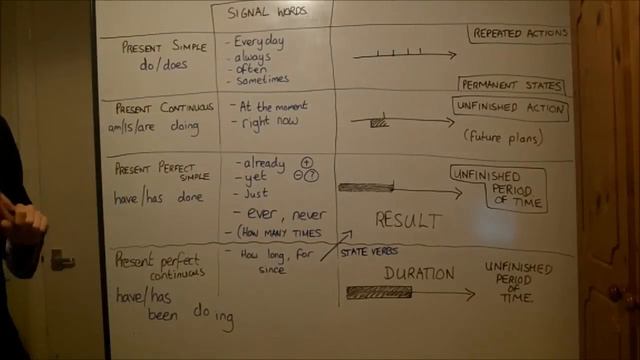 SIGNAL WORDS
PRESENT SIMPLE
do/does
- Everyday
- always
- often
- sometimes
REPEATED ACTIONS
PERMANENT STATES
PRESENT CONTINUOUS
am/is/are doing
- At the moment
- right now
UNFINISHED ACTION
(future plans)
PRESENT PERFECT
SIMPLE
have/has done
- already +
- yet - ?
- Just
- ever, never
- (HOW MANY TIMES
UNFINISHED
PERIOD
OF TIME
RESULT
Present perfect
continuous
have/has
been do ing
- How long, for
since
STATE VERBS
DURATION
UNFINISHED
PERIOD
OF
TIME.